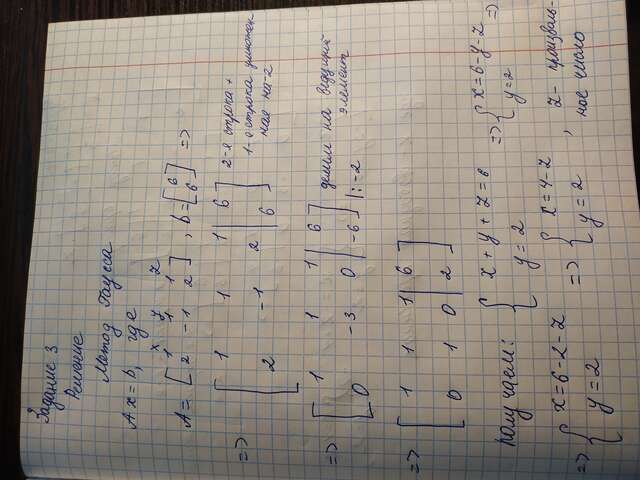 Задание 3
Решение
Метод Гаусса
Ax = b, где
x y z
A = [1 1 1; 2 -1 2], b = [6; 6] =>
=> [1 1 1 | 6; 2 -1 2 | 6] 2-я строка + 1-я строка умноженная на -2
=> [1 1 1 | 6; 0 -3 0 | -6] делим на ведущий элемент |: -2
=> [1 1 1 | 6; 0 1 0 | 2]
получаем: { x + y + z = 6; y = 2 => { x = 6 - y - z; y = 2 =>
=> { x = 6 - 2 - z; y = 2 => { x = 4 - z; y = 2, z - произвольное число